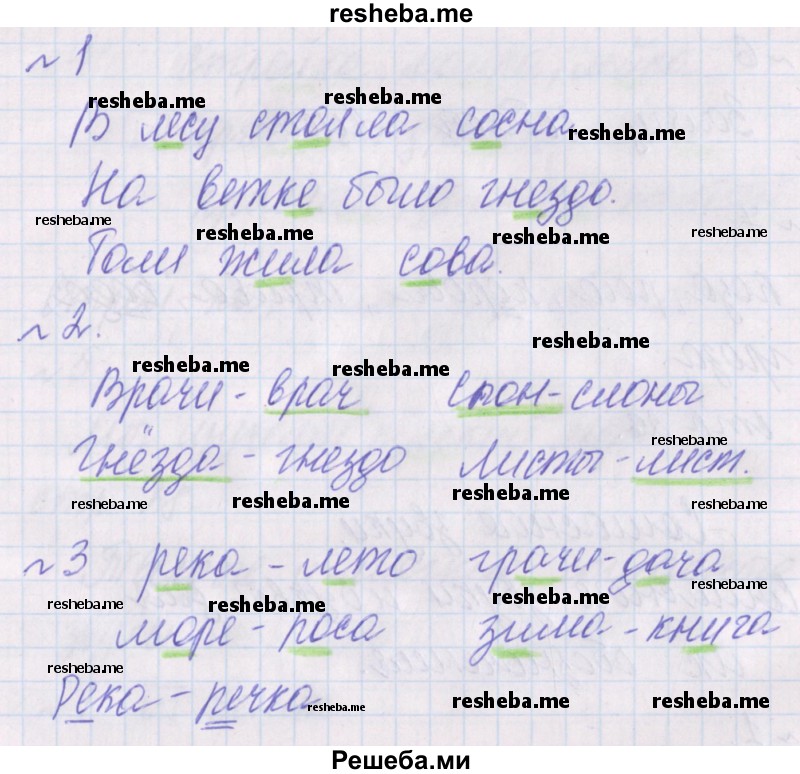 resheba.me
~ 1
resheba.me resheba.me
В лесу стояла сосна. resheba.me
На ветке было гнездо.
resheba.me resheba.me resheba.me resheba.me
Там жила сова.
~ 2. resheba.me
resheba.me resheba.me
Врачи - врач Слон - слоны
resheba.me
Гнёзда - гнездо Листы - лист.
resheba.me resheba.me resheba.me resheba.me
~ 3 река - лето грачи - дача
resheba.me resheba.me resheba.me resheba.me
море - роса зима - книга
resheba.me
Река - речка resheba.me resheba.me resheba.me
Решеба.ми